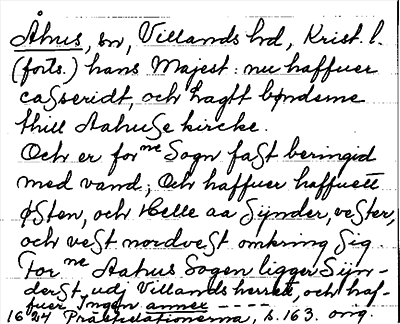 Åhus, sn, Villands hd, Krist. l.
(forts.) hans Majest: nu haffuer
casseridt, och lagtt bønderne
thill Aahuse kircke.
Och er forne Sogn fast beringid
med vand, Och haffuer haffuett
østen, och Helle aa Sÿnder, vester,
och vest nordvest omkring sig
Forne Aahus Sogen ligger Sÿn-
derst, udj Villands herrett, och haf-
fuer Jngen annex ----
1624 Præsterelationerna, s. 163. orig.